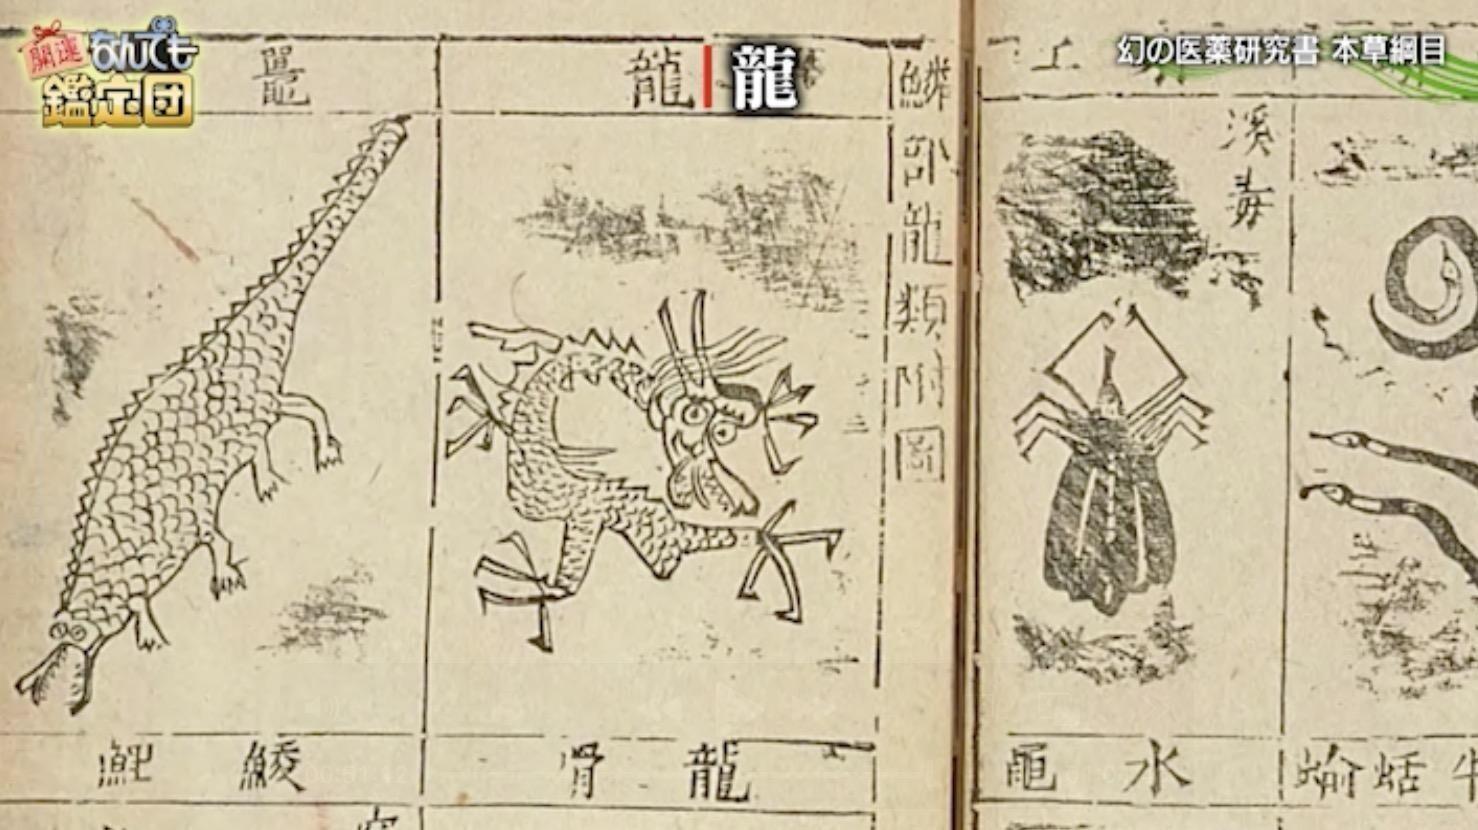 開運
なんでも
鑑定団
幻の医薬研究書 本草綱目
龍
上
溪毒
鱗部龍類附圖
龍
水黽
龍骨
鯪